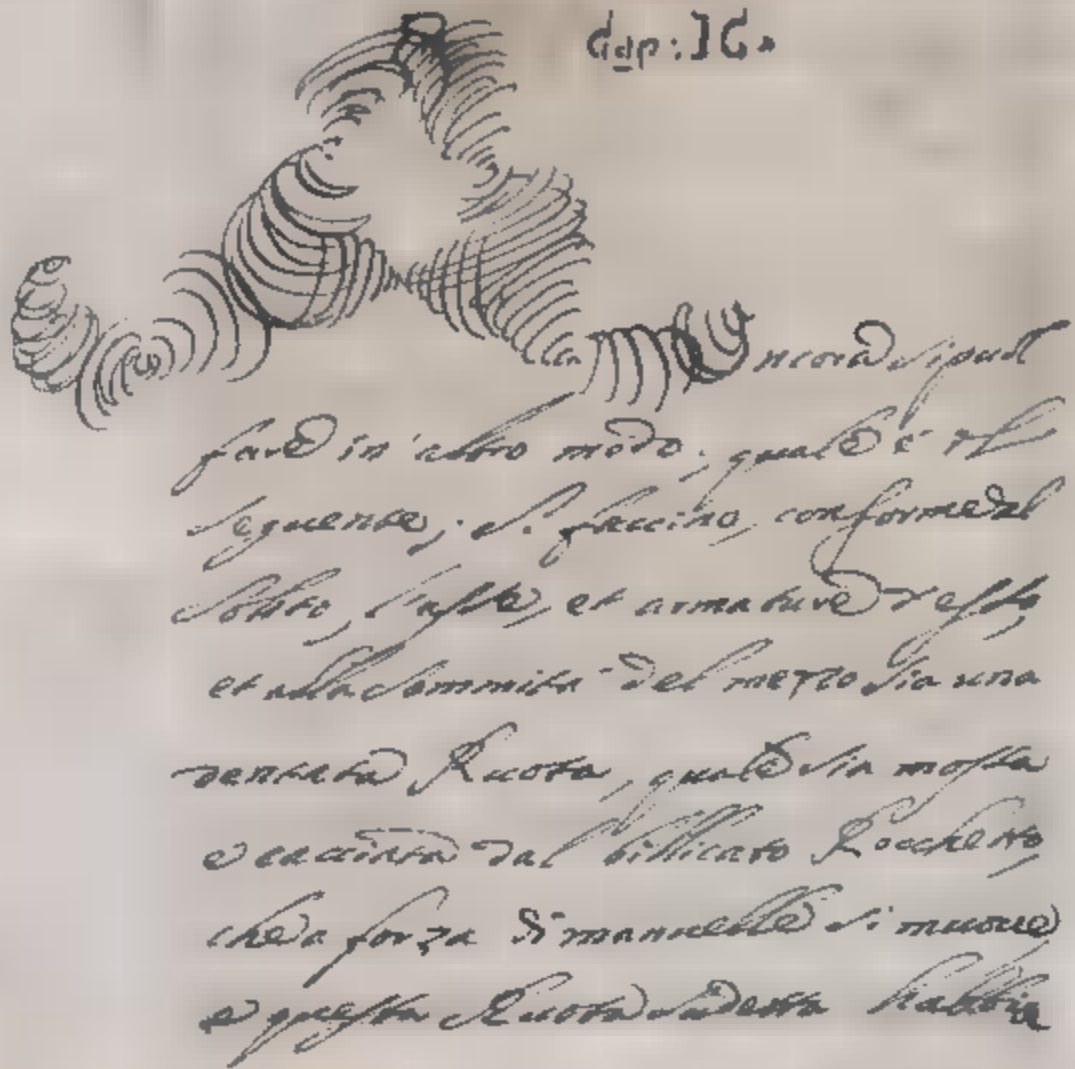 Cap: 16.
Ancora si può
fare in altro modo, quale è il
seguente, si faccino conforme al
solito, l'aste, et armature d'esse
et alla sommità del mezzo sia una
dentata Ruota, quale sia mossa
e cacciata dal billicato Rocchetto
che a forza di manuelle si muove
e questa Ruota sudetta habbia